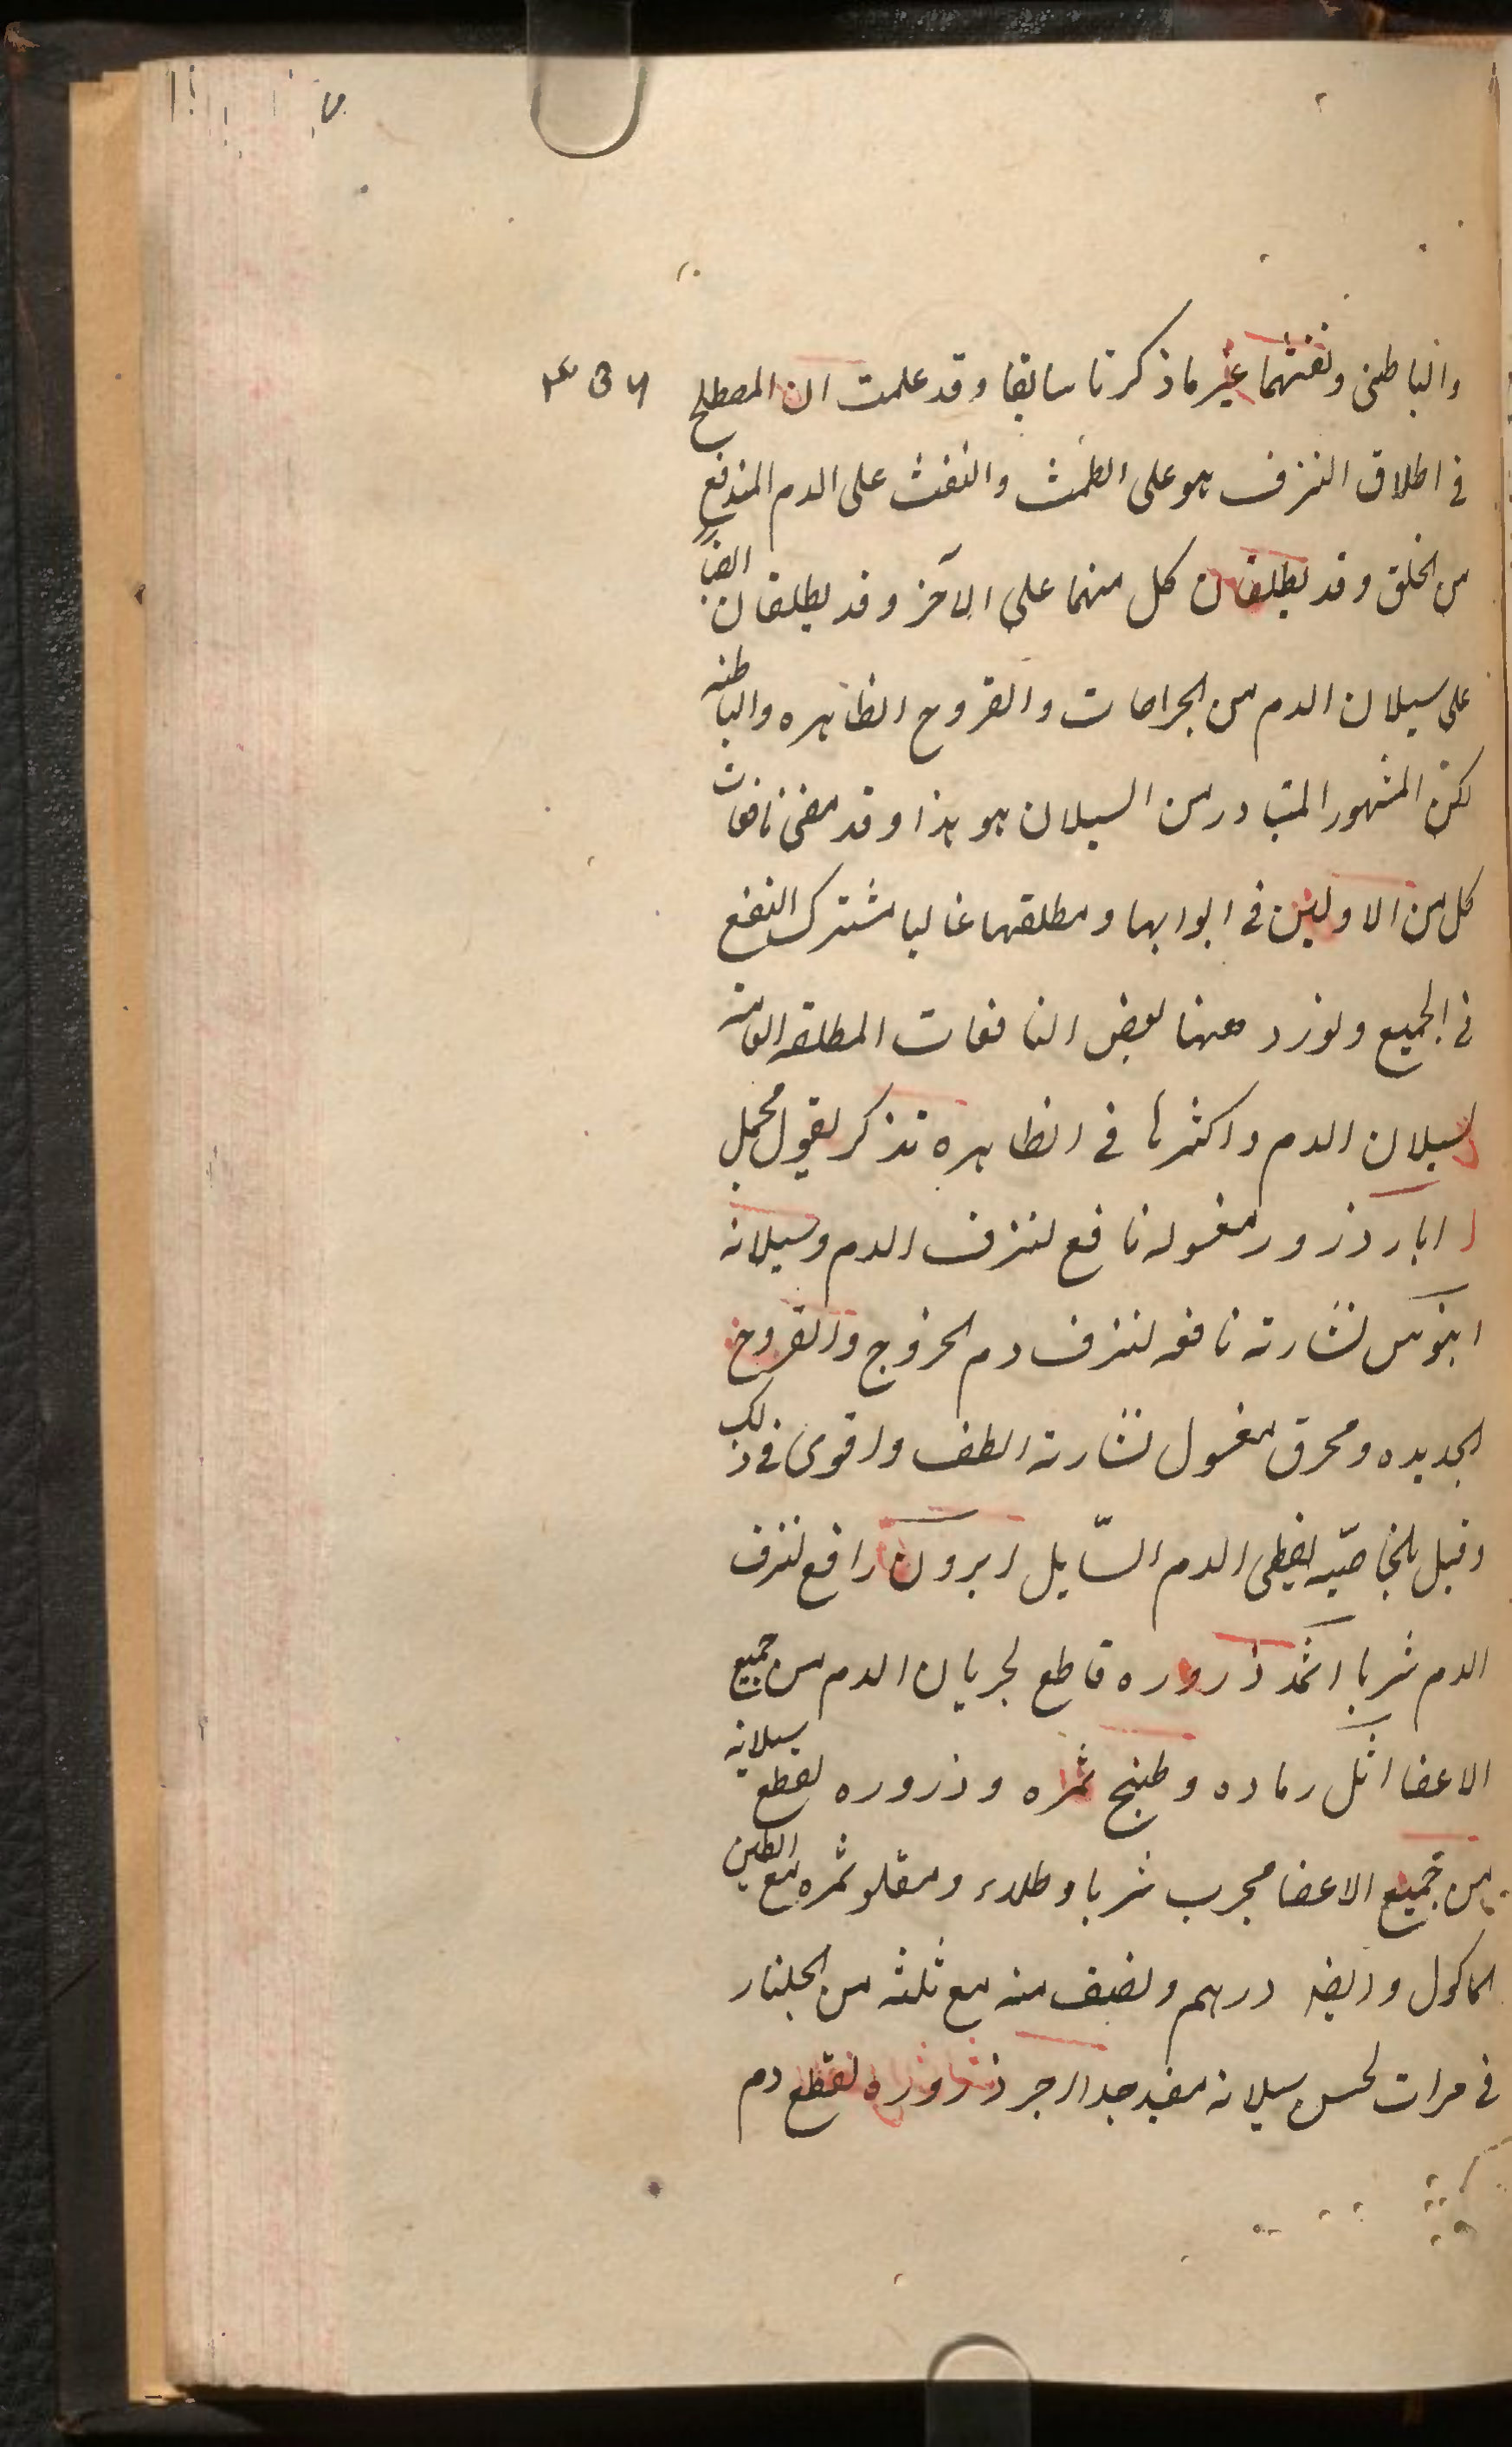 والباطنى ونفثهما غير ما ذكرنا سابقا وقد علمت ان المصطلح
فى اطلاق النزف هو على الطمث والنفث على الدم المندفع
من الحلق وقد يطلقان كل منهما على الآخر وقد يطلقان ايضا
على سيلان الدم من الجراحات والقروح الظاهره والباطنه
لكن المشهور المتبادر من السيلان هو هذا وقد مضى نافعات
كل من الاولين فى ابوابها ومطلقها غالبا مشترك النفع
فى الجميع ونورد ههنا بعض النافعات المطلقه العامه
لسيلان الدم واكثرها فى الظاهره تذكر بقول مجمل
ابار ذرور مغسوله نافع لنزف الدم وسيلانه
ابنوس نشارته نافعه لنزف دم الخروج والقروح
الجديده ومحرق مغسول نشارته الطف واقوى فى ذلك
وقيل بالخاصيه يقطع الدم السّايل ابرون رافع لنزف
الدم شربا اثمد ذروره قاطع لجريان الدم من جميع
الاعضا اثل رماده وطبيخ ثمره وذروره لقطع سيلانه
من جميع الاعضا مجرب شربا وطلاء ومقلو ثمره مع الطين
الماكول وايضا درهم ونصف منه مع ثلثه من الجلنار
فى مرات لحبس سيلانه مفيد جدا اجر ذروره لقطع دم